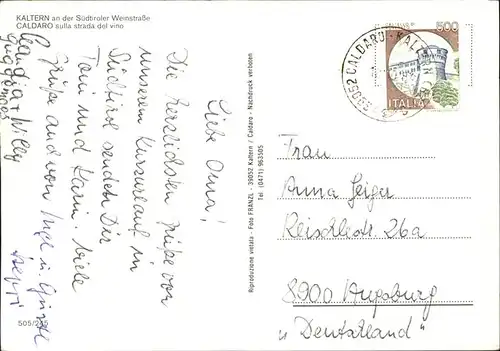 KALTERN an der Südtiroler Weinstraße
CALDARO sulla strada del vino
Liebe Oma!
Die herzlichsten Grüße von
unserem Kurzurlaub in
Südtirol senden Dir
Toni und Karin. Viele
Grüße auch von
Claudia + Willy
Seppi
505/245
Riproduzione vietata - Foto FRANZL - 39052 Kaltern / Caldaro - Nachdruck verboten
Tel. (0471) 963505
500
ITALIA
39052 CALDARO - KALT
Frau
Anna Geiger
Reischlestr. 26a
8900 Augsburg
„Deutschland"